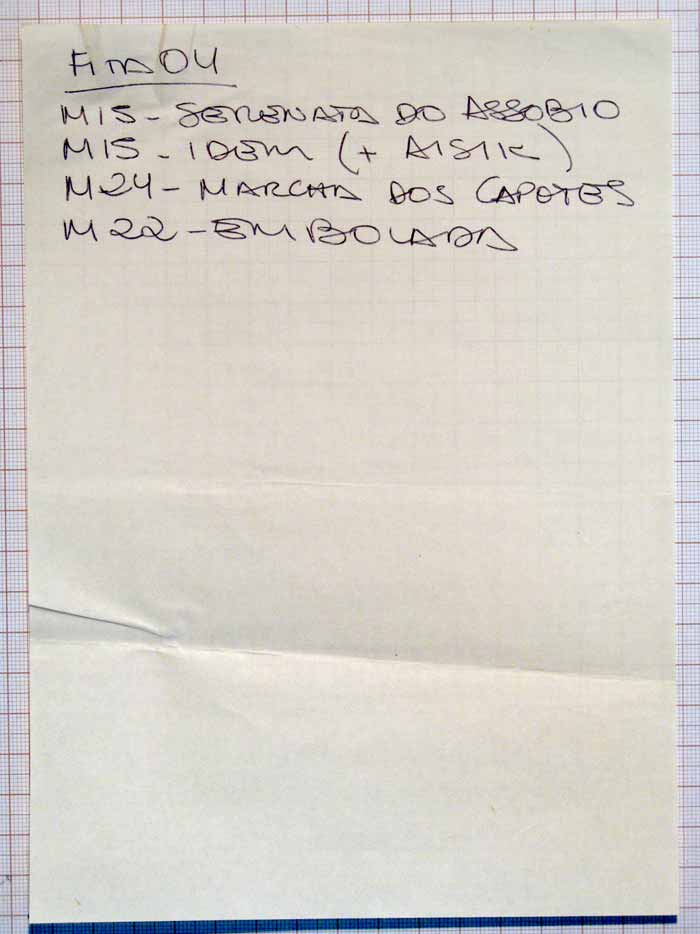 FITA 04
M15 - SERENATA DO ASSOBIO
M15 - IDEM (+ AISIK)
M24 - MARCHA DOS CAPOTES
M22 - EMBOLADA